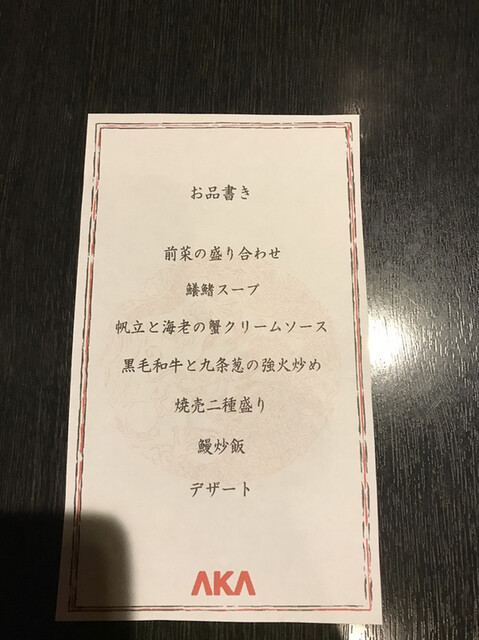 お品書き
前菜の盛り合わせ
鱶鰭スープ
帆立と海老の蟹クリームソース
黒毛和牛と九条葱の強火炒め
焼売二種盛り
鰻炒飯
デザート
AKA